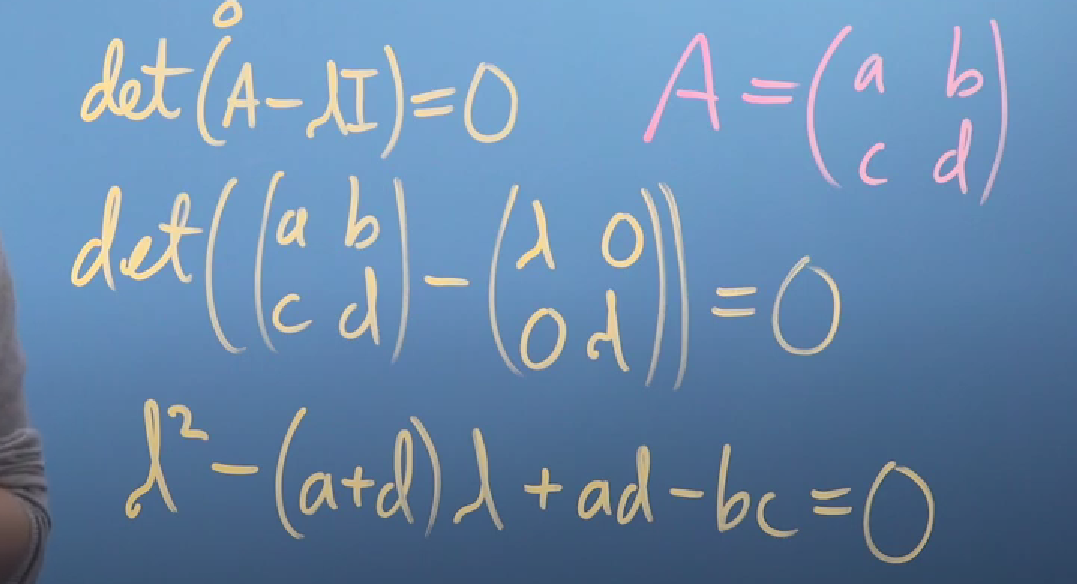 det(A-λI)=0
A=(a b
c d)
det((a b
c d)-(λ 0
0 λ))=0
λ²-(a+d)λ+ad-bc=0